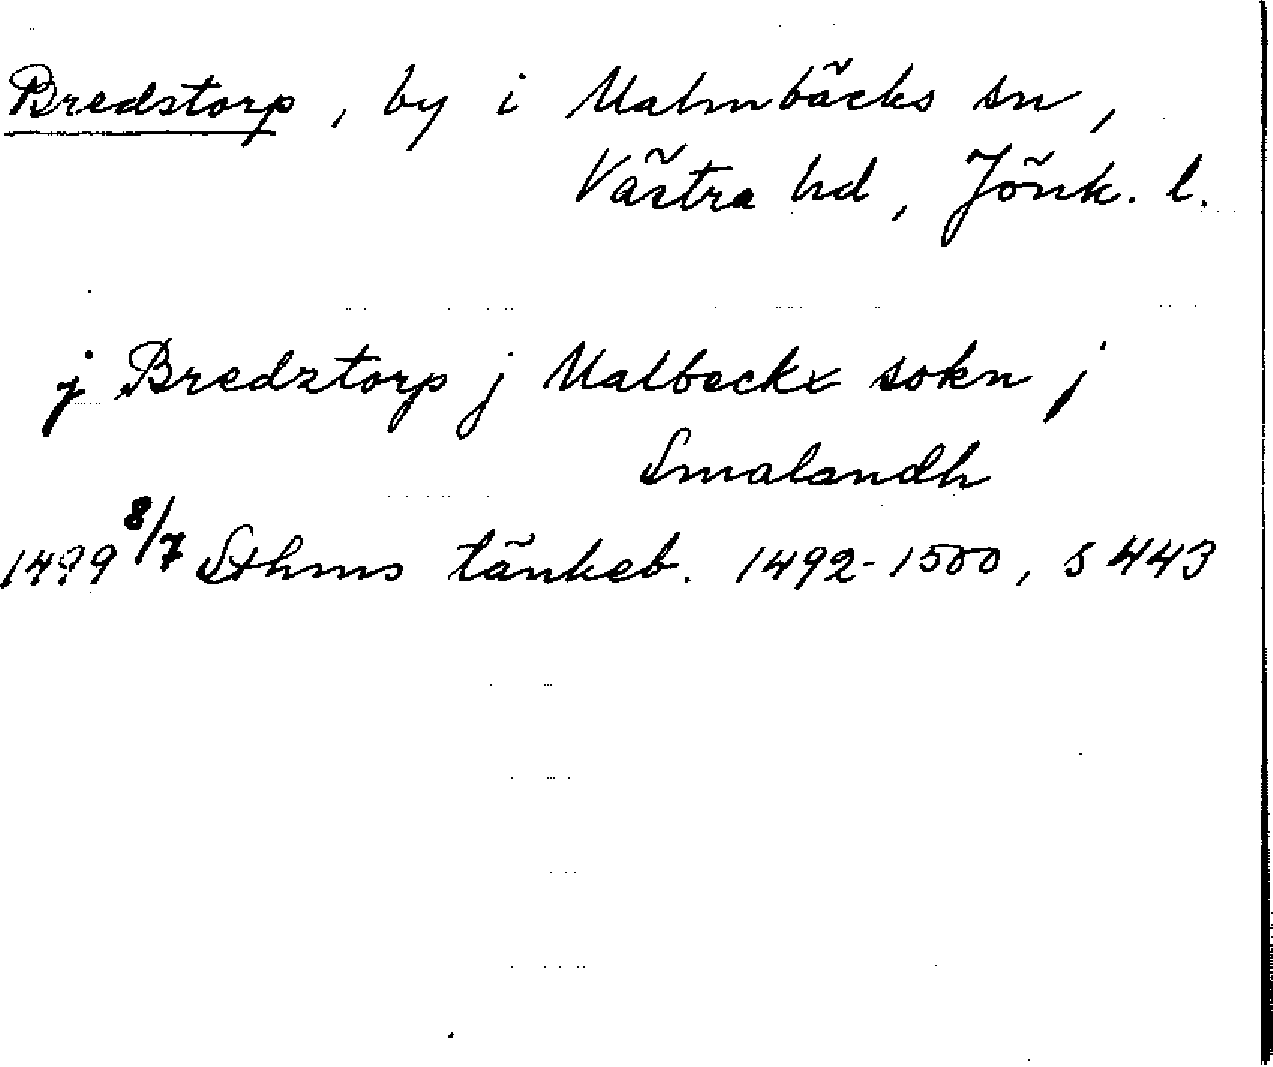 Bredstorp, by i Malmbäcks sn,
Västra hd, Jönk. l.
j Bredztorp j Malbeckx sokn j
Smalandh
1499 8/7 Sthms tänkeb. 1492-1500, s 443